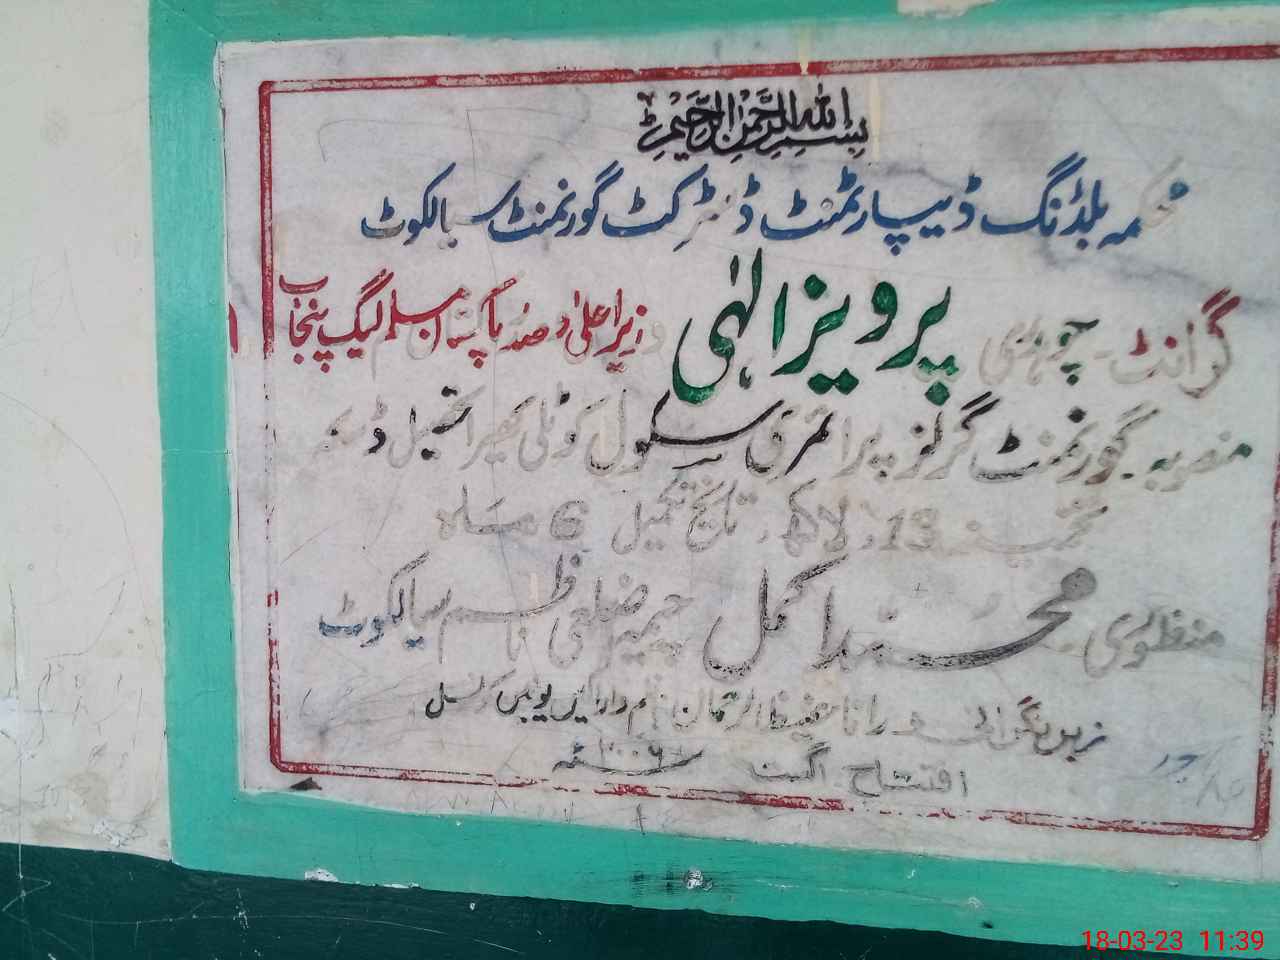 بسم اللہ الرحمٰن الرحیم
محکمہ بلڈنگ ڈیپارٹمنٹ ڈسٹرکٹ گورنمنٹ سیالکوٹ
گرانٹ۔ چوہدری پرویز الٰہی وزیر اعلیٰ و صدر پاکستان مسلم لیگ پنجاب
منصوبہ۔ گورنمنٹ گرلز پرائمری سکول کوٹلی تحصیل ڈسکہ
تخمینہ 13 لاکھ۔ تاریخ تکمیل 6 ماہ
منظوری۔ محمد اکمل چیمہ ضلعی ناظم سیالکوٹ
زیرنگرانی رانا حفیظ الرحمان ناظم یونین کونسل
افتتاح۔ اگست ۲۰۰۶ء
18-03-23 11:39